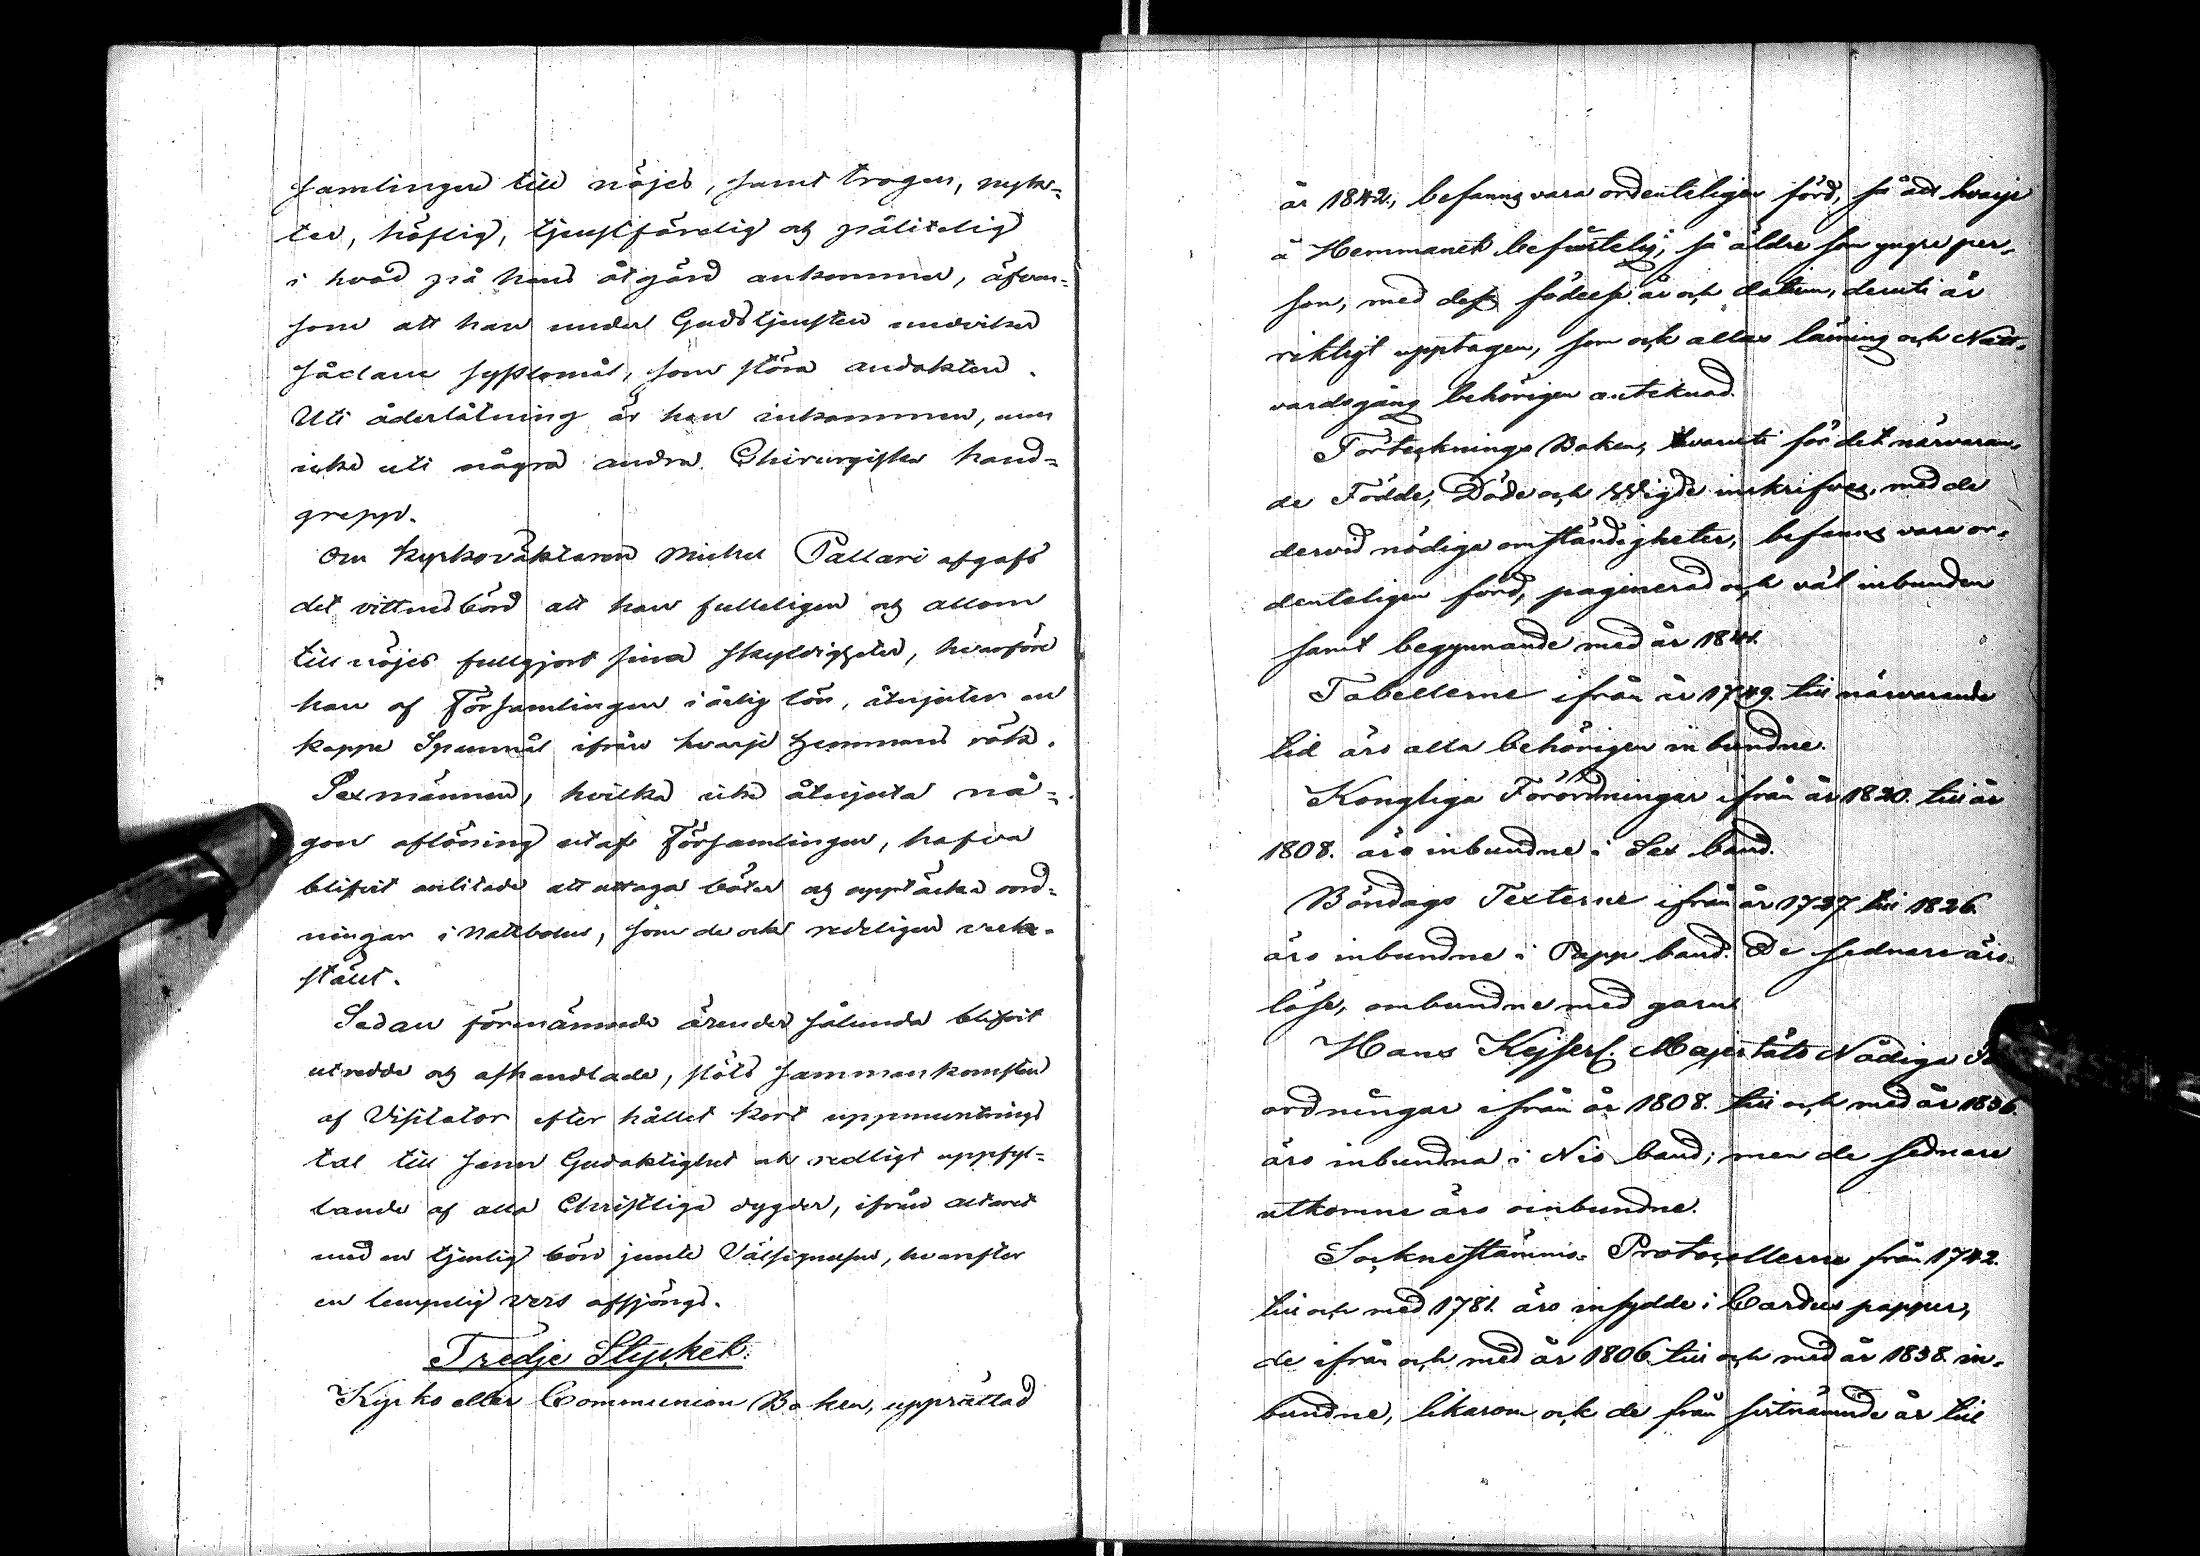 samlingen till nöjes, samt trogen, nyk=
ter, höflig, tjenstfärdig och pålitelig
i hvad på hans åtgärd ankommer, äfven=
som att han under Gudstjensten undviker
sådane sysslomål, som störa andakten.
Uti åderlåtning är han inkommen, men
icke uti några andra Chirurgiska hand=
grepp.
Om Kyrkoväktaren Michel Pallari afgafs
det vittnesbörd att han fulleligen och allom
till nöjes fullgjort sina skyldigheter, hvarföre
han af Församlingen i årlig lön, åtnjuter en
kappe Spannmål ifrån hvarje Hemmans rök.
Sexmännen, hvilka icke åtnjuta nå=
gon aflöning utaf Församlingen, hafva
blifvit anlitade att uttaga böter och upptäcka oord=
ningar i Nattbolen, som de ock redeligen verk=
stält.
Sedan förenämnde ärender sålunda blifvit
utredde och afhandlade, slöts sammankomsten
af Visitator efter hållet kort uppmuntrings
tal till sann Gudaktighet och redligt uppfyl=
lande af alla Christliga dygder, ifrån altaret
med en tjenlig bön jemte Välsignelsen, hvarefter
en lempelig vers afsjöngs.
Tredje Stycket.
Kyrko eller Communion Boken, upprättad
år 1842, befanns vara ordenteligen förd, så att hvarje
å Hemmanet befintelig, så äldre som yngre per=
son, med dess födelse år och datum, deruti är
riktigt upptagen, som ock allas läsning och Natt=
vardsgång behörigen antecknad.
Förtecknings Boken, hvaruti för det närvaran=
de Födde, Döde och Wigde inskrifves, med de
dervid nödiga omständigheter, befanns vara or=
denteligen förd, paginerad och väl inbunden
samt begynnande med år 1841.
Tabellerne ifrån år 1749. till närvarande
tid äro alla behörigen inbundne.
Kongliga Förordningar ifrån år 1820. till år
1808. äro inbundne i Sex band.
Böndags Texterne ifrån år 1727 till 1826.
äro inbundne i Papp band. De sednare äro
löse, ombundne med garn.
Hans Kejserl. Majestäts Nådiga
ordningar ifrån år 1808. till och med år 1836.
äro inbundna i Nio band; men de sednare
utkomne äro oinbundne.
Socknestämmo= Protocollerne från 1742.
till och med 1781. äro insydde i Cardus papper,
de ifrån och med år 1806 till och med år 1838 in=
bundne, likasom ock de från sistnämnde år till